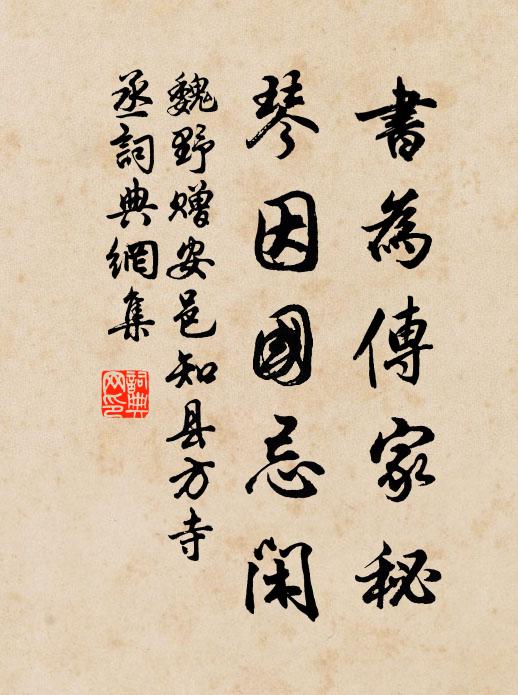 書為傳家秘
琴因國忌閑
魏野贈安邑知县方寺
丞詞典網集
詞典
网印